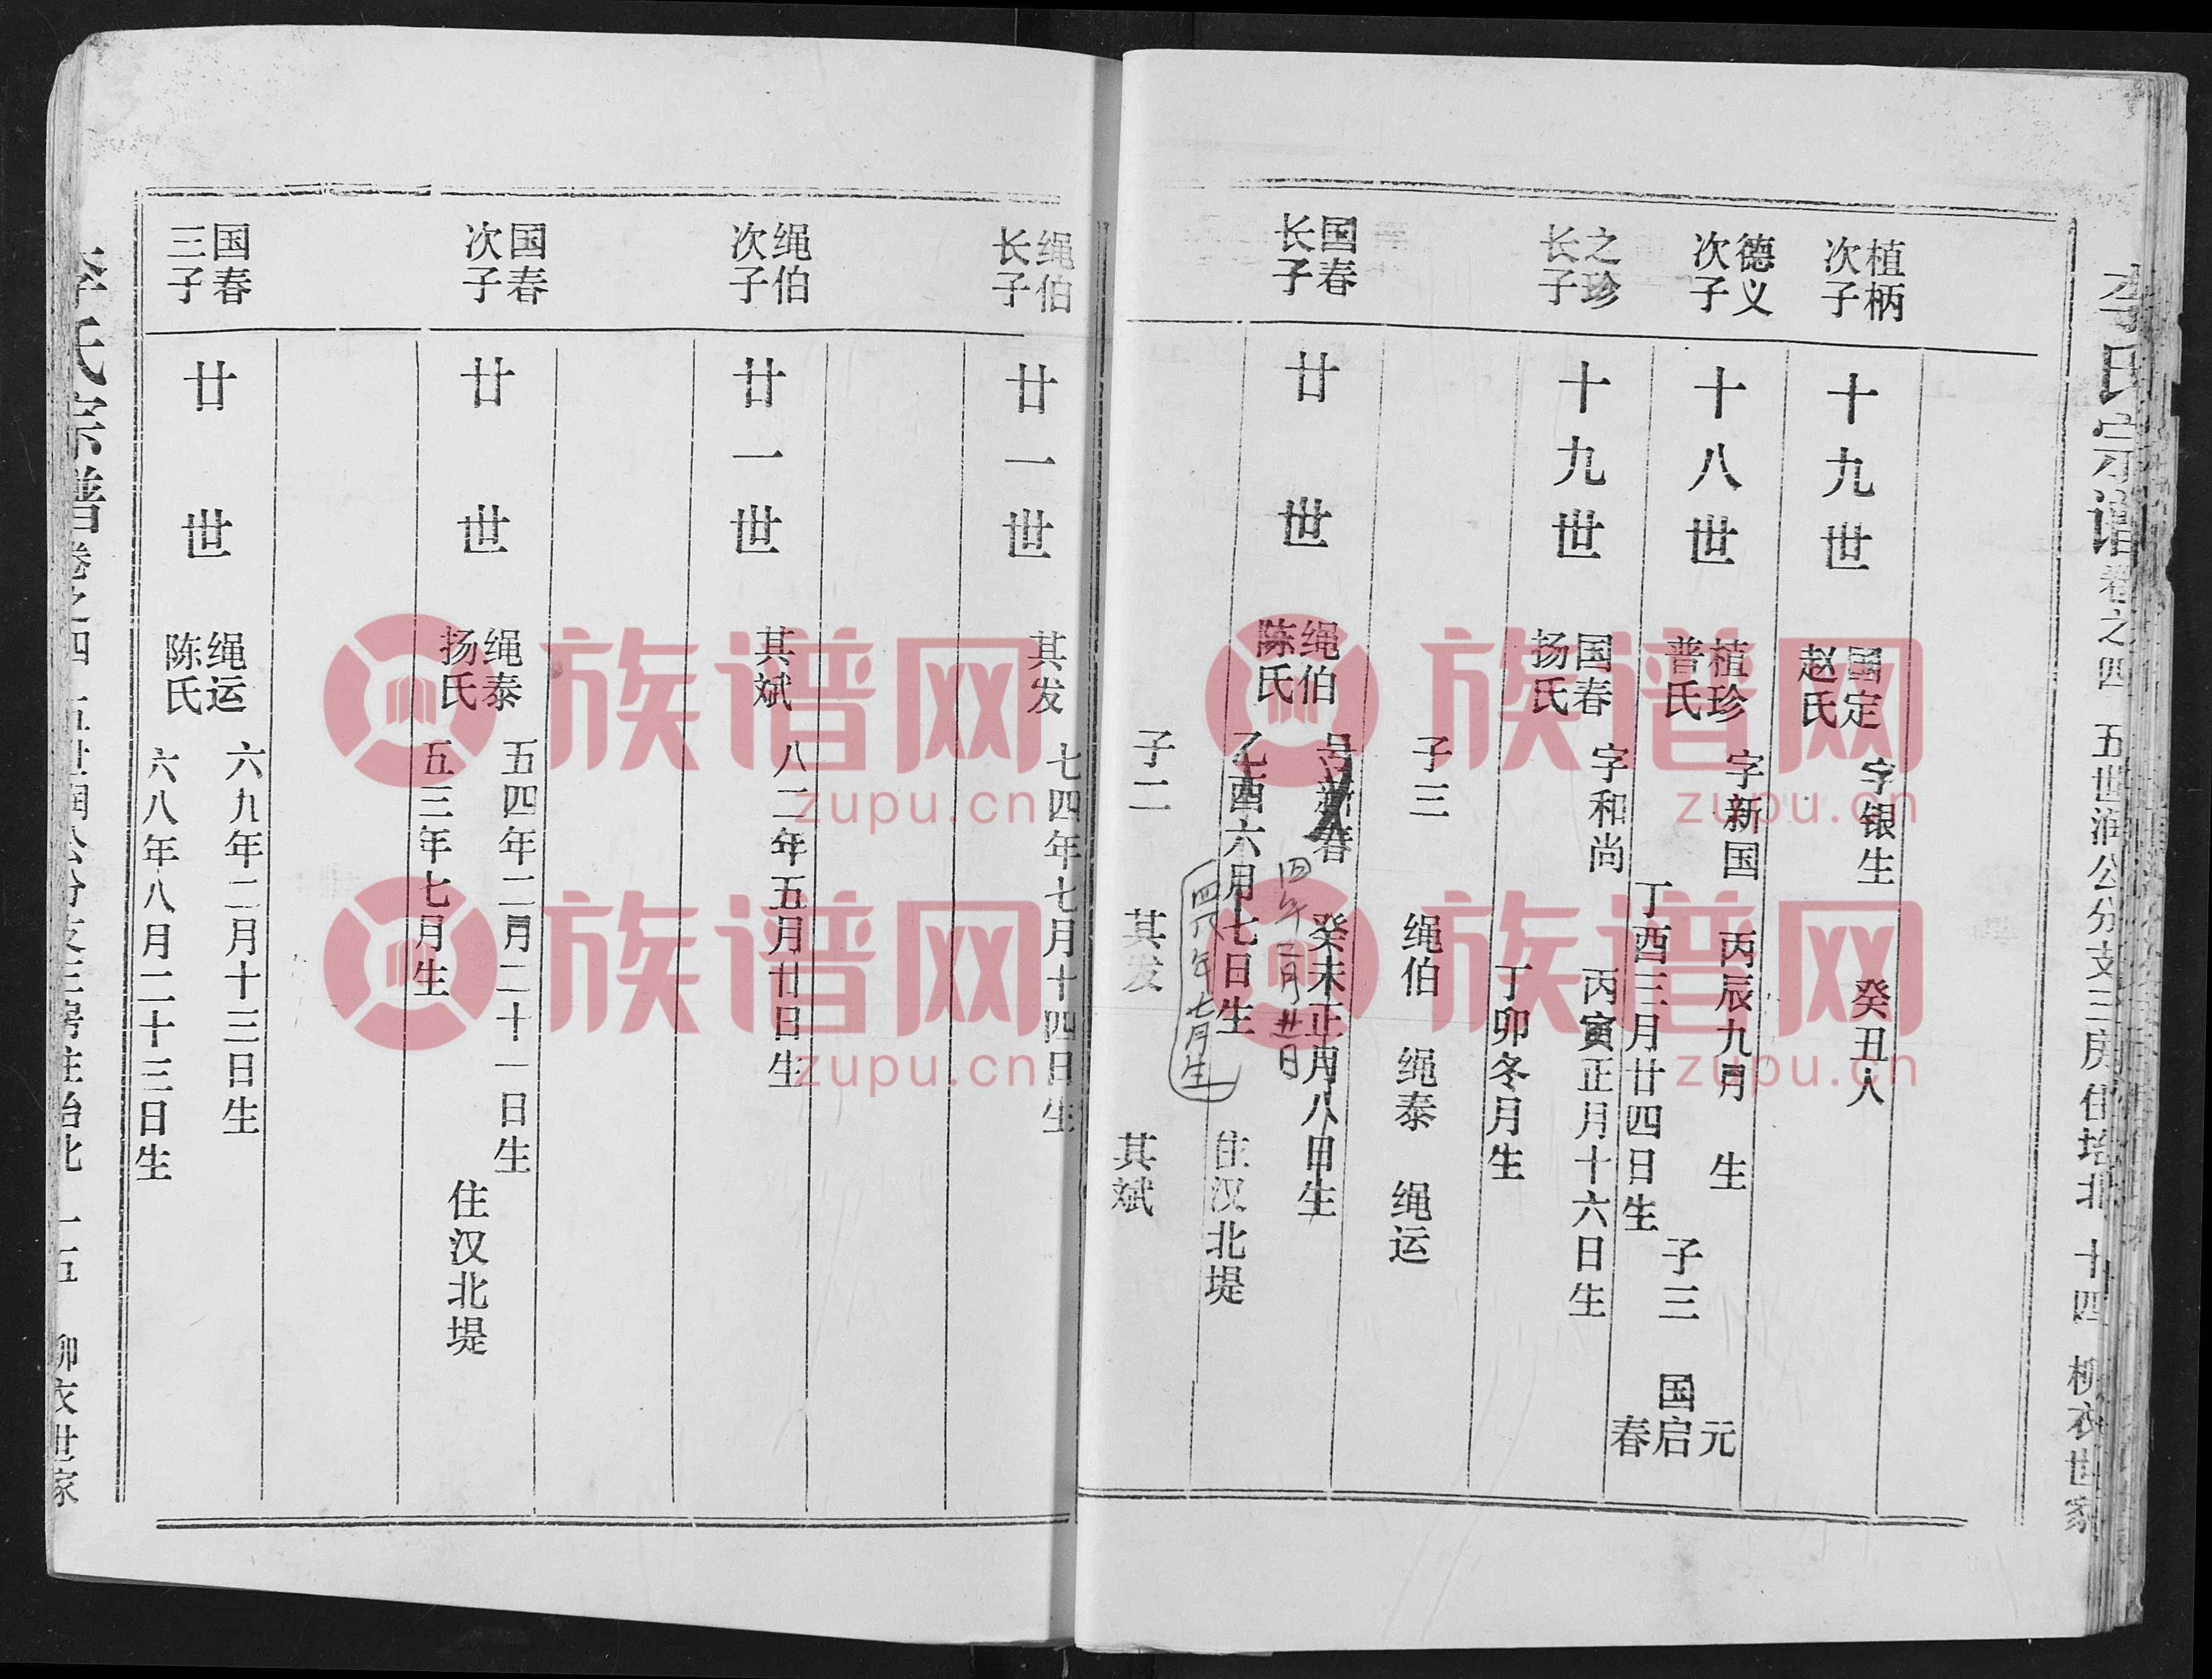 李氏宗谱 卷之四 五世润公分支三房住培北 十四 柳衣世家
植柄
次子
十九世
国定
赵氏
字银生 癸丑人
德义
次子
十八世
植珍
普氏
字新国 丙辰九月 生
丁酉三月廿四日生
子三 国
元
启
春
之珍
长子
十九世
国春
扬氏
字和尚 丙寅正月十六日生
丁卯冬月生
子三 绳伯 绳泰 绳运
国春
长子
廿世
绳伯
陈氏
号新春 癸未正月八日生
四年二月廿日
乙酉六月七日生
四六年七月生
住汉北堤
子二 其发 其斌
绳伯
长子
廿一世
其发
七四年七月十四日生
绳伯
次子
廿一世
其斌
八二年五月廿日生
国春
次子
廿世
绳泰
扬氏
五四年二月二十一日生
五三年七月生
住汉北堤
国春
三子
廿世
绳运
陈氏
六九年二月十三日生
六八年八月二十三日生
李氏宗谱 卷之四 五世润公分支三房住培北 十五 柳衣世家
族谱网
zupu.cn
族谱网
zupu.cn
族谱网
zupu.cn
族谱网
zupu.cn